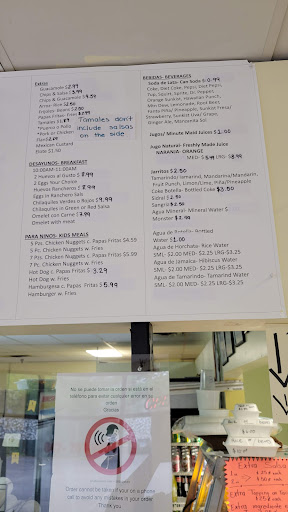 Extras
Guacamole $2.99
Chips & Salsa $3.99
Chips & Guacamole $7.50
Arroz- Rice $2.50
Frijoles- Beans $2.50
Papas Fritas- Fries $2.99
Tamales $2.69
*Puerco o Pollo
*Pork or Chicken
Flan $
Mexican Custard
Roste $1.50
Tamales don't
include salsas
on the side
DESAYUNOS- BREAKFAST
10:00AM-11:00AM
2 Huevos al Gusto $8.99
2 Eggs Your Choice
Huevos Rancheros $8.99
Eggs in Ranchero Salsa
Chilaquiles Verdes o Rojos $9.99
Chilaquiles in Green or Red Salsa
Omelet con Carne $7.99
Omelet with meat
PARA NINOS- KIDS MEALS
5 Pzs. Chicken Nuggets c. Papas Fritas $4.59
5 Pc. Chicken Nuggets w. Fries
7 Pzs. Chicken Nuggets c. Papas Fritas $5.99
7 Pc. Chicken Nuggets w. Fries
Hot Dog c. Papas Fritas $3.29
Hot Dog w. Fries
Hamburgesa c. Papas Fritas $5.99
Hamburger w. Fries
BEBIDAS- BEVERAGES
Soda de Lata- Can Soda $0.99
Coke, Diet Coke, Pepsi, Diet Pepsi
7up, Squirt, Sprite, Dr. Pepper,
Orange Sunkist, Hawaiian Punch,
Mtn Dew, Lemonade, Root Beer,
Fanta Piña/ Pineapple, Sunkist Fresa/
Strawberry, Sunkist Uva/ Grape,
Ginger Ale, Manzanita Sol
Jugos/ Minute Maid Juices $2.00
Jugo Natural- Freshly Made Juice
NARANJA- ORANGE
MED- $5.49 LRG- $8.99
Jarritos $2.50
Tamarindo/ Tamarind, Mandarina/Mandarin,
Fruit Punch, Limon/Lime, Piña/Pineapple
Coke Botella- Bottled Coke $3.50
Sidral $2.50
Sangria $2.50
Agua Mineral- Mineral Water $
Monster $3.99
Agua de Botella- Bottled
Water $1.00
Agua de Horchata- Rice Water
SML- $2.00 MED- $2.25 LRG-$3.25
Agua de Jamaica- Hibiscus Water
SML- $2.00 MED- $2.25 LRG-$3.25
Agua de Tamarindo- Tamarind Water
SML- $2.00 MED- $2.25 LRG-$3.25
No se puede tomar la orden si está en el
teléfono para evitar cualquier error en su
orden
Gracias
Order cannot be taken if your on a phone
call to avoid any mistakes in your order
Thank you
Extra Salsa
Extra Topping
Extra